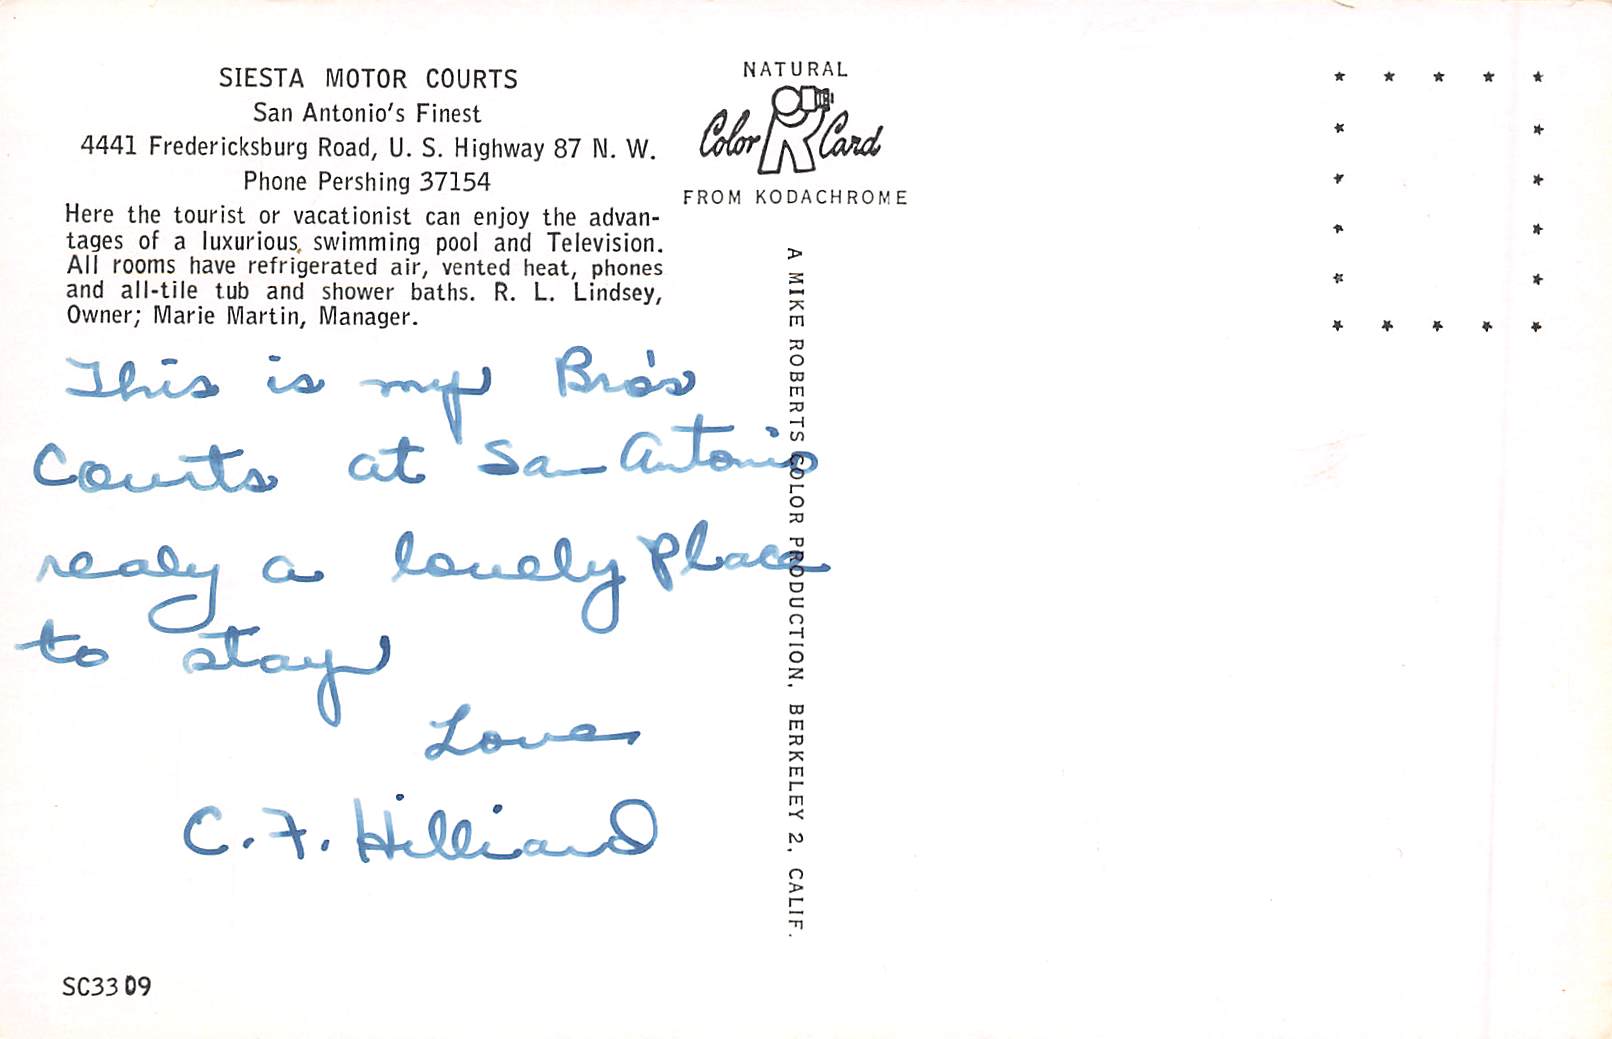 SIESTA MOTOR COURTS
San Antonio's Finest
4441 Fredericksburg Road, U. S. Highway 87 N. W.
Phone Pershing 37154
Here the tourist or vacationist can enjoy the advan-
tages of a luxurious swimming pool and Television.
All rooms have refrigerated air, vented heat, phones
and all-tile tub and shower baths. R. L. Lindsey,
Owner; Marie Martin, Manager.
This is my Bro's
Courts at San Antonio
realy a lovely place
to stay
Love
C. F. Hilliard
SC3309
NATURAL
Color Card
FROM KODACHROME
A MIKE ROBERTS COLOR PRODUCTION, BERKELEY 2, CALIF.